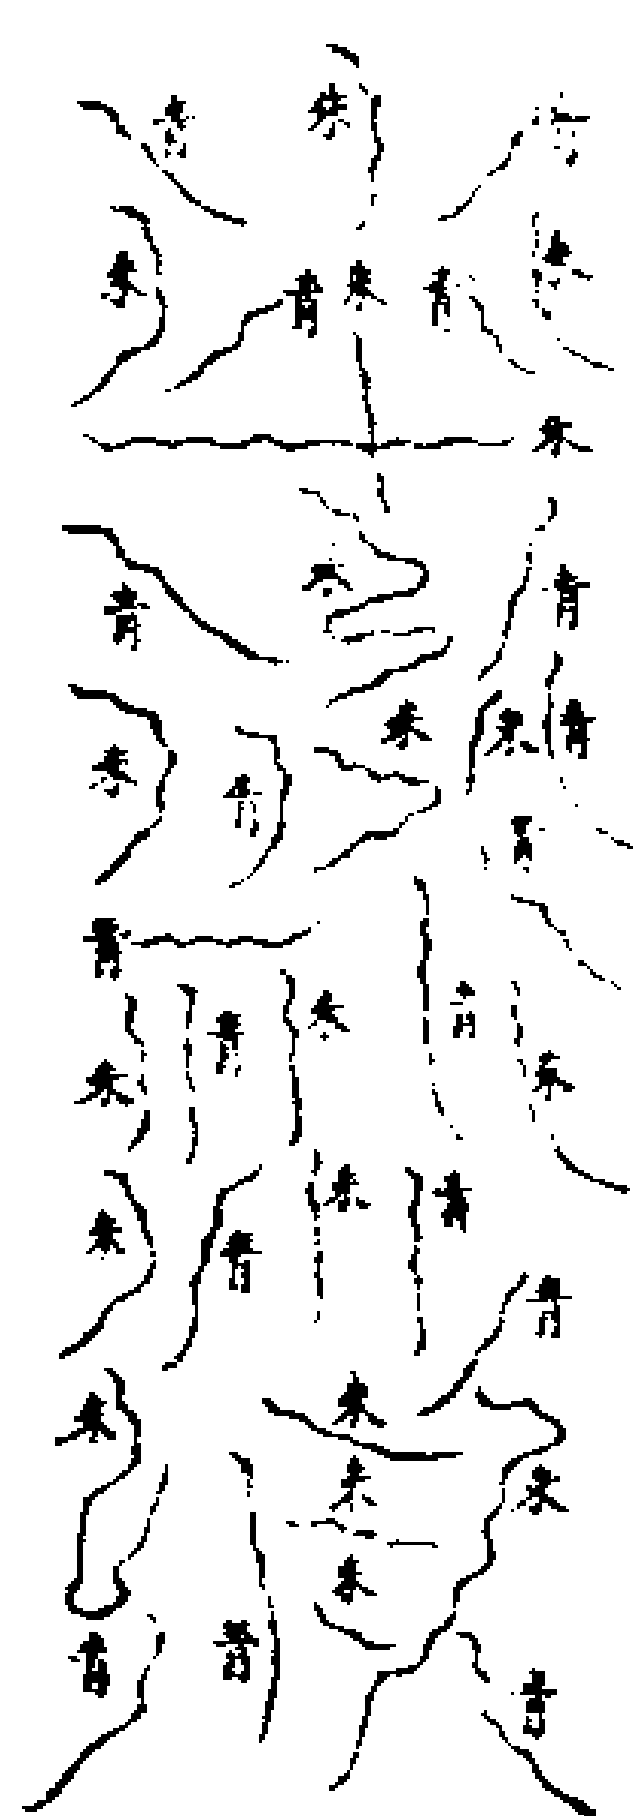 青 朱
朱 青 朱 青 朱
朱
青 朱 青
朱 朱 青
朱 青
青
青
青 朱 青
朱 朱
朱 青
朱 青
青
朱 朱
朱 朱
朱
青 青
青